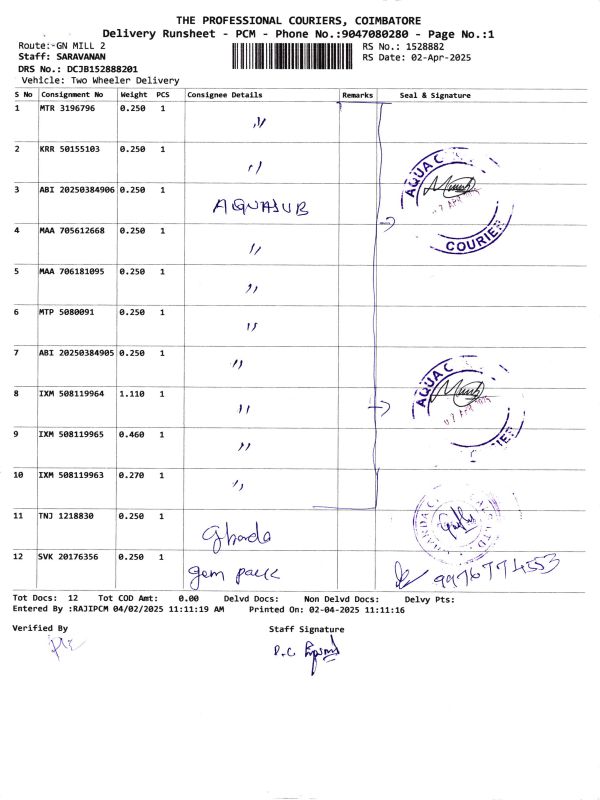 THE PROFESSIONAL COURIERS, COIMBATORE
Delivery Runsheet - PCM - Phone No.:9047080280 - Page No.:1
Route:-GN MILL 2 RS No.: 1528882
Staff: SARAVANAN RS Date: 02-Apr-2025
DRS No.: DCJB152888201
Vehicle: Two Wheeler Delivery
S No Consignment No Weight PCS Consignee Details Remarks Seal & Signature
1 MTR 3196796 0.250 1 "
2 KRR 50155103 0.250 1 "
3 ABI 20250384906 0.250 1 AQUASUB
4 MAA 705612668 0.250 1 "
5 MAA 706181095 0.250 1 "
6 MTP 5080091 0.250 1 "
7 ABI 20250384905 0.250 1 "
8 IXM 508119964 1.110 1 "
9 IXM 508119965 0.460 1 "
10 IXM 508119963 0.270 1 "
11 TNJ 1218830 0.250 1 Gharda
12 SVK 20176356 0.250 1 gem pack 9976774553
AQUA
COURIER
AQUA
Tot Docs: 12 Tot COD Amt: 0.00 Delvd Docs: Non Delvd Docs: Delvy Pts:
Entered By :RAJIPCM 04/02/2025 11:11:19 AM Printed On: 02-04-2025 11:11:16
Verified By Staff Signature